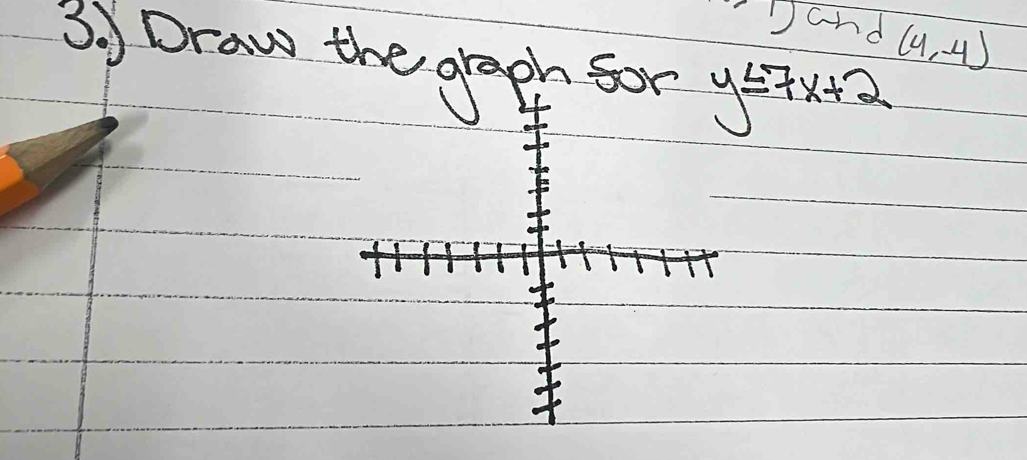 1) and (4,-4)
3.) Draw the graph for y≤7x+2